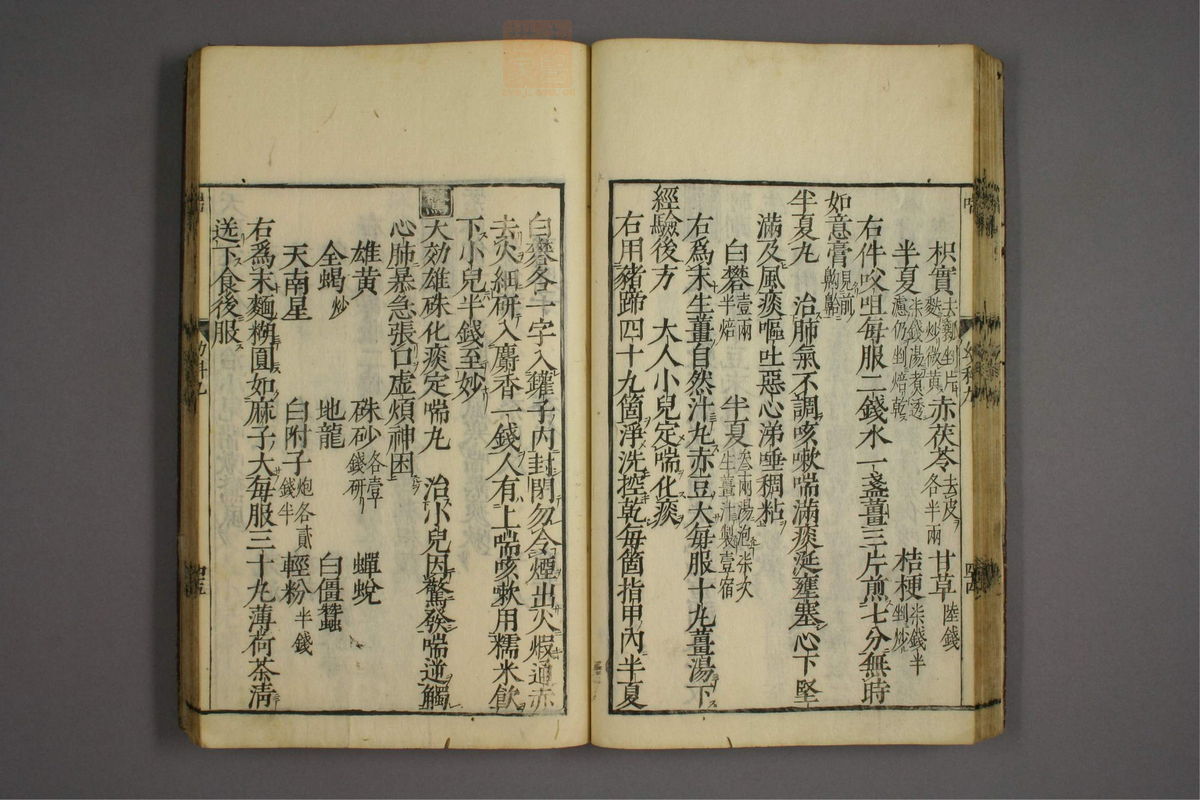 枳實去瓤剉片麩炒微黃 赤茯苓去皮各半兩 甘草陸錢
半夏柒錢湯煮透濾仍剉焙乾 桔梗柒錢半剉炒
右件㕮咀每服二錢水一盞薑三片煎七分無時
如意膏見前齁䶎
半夏丸 治肺氣不調咳嗽喘滿痰涎壅塞心下堅
滿及風痰嘔吐惡心涕唾稠粘
白礬壹兩半焙 半夏叁兩湯泡柒次生薑汁製壹宿
右爲末生薑自然汁丸赤豆大每服十丸薑湯下
經驗後方 大人小兒定喘化痰
右用豬蹄四十九箇淨洗控乾每箇指甲內半夏
白礬各一字入鑵子內封閉勿令煙出火煆通赤
去火細研入麝香一錢人有上喘咳嗽用糯米飮
下小兒半錢至妙
大効雄硃化痰定喘丸 治小兒因驚發喘逆觸
心肺暴急張口虛煩神困
雄黃 硃砂各壹錢研 蟬蛻
全蝎炒 地龍 白僵蠶
天南星 白附子炮各貳錢半 輕粉半錢
右爲末麵糊圓如麻子大每服三十丸薄荷茶淸
送下食後服
幼科九
四五